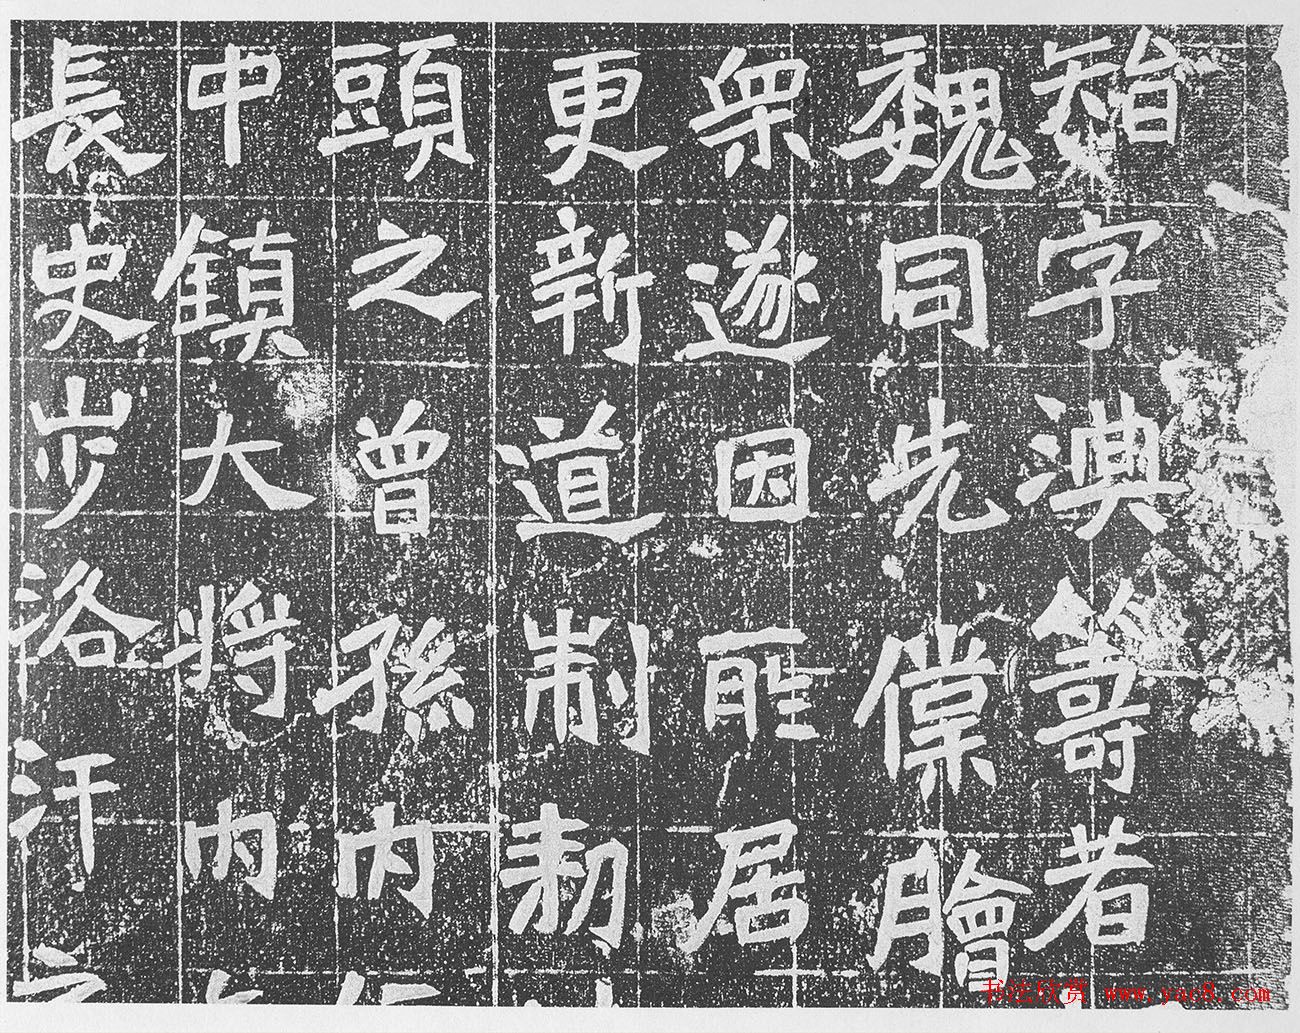 智字淟籌者
魏同先僕膾
衆遂因所居
更新道制勅
頭之曾孫内行
中鎮大将内
長史步洛汗之
书法欣赏 www.yac8.com